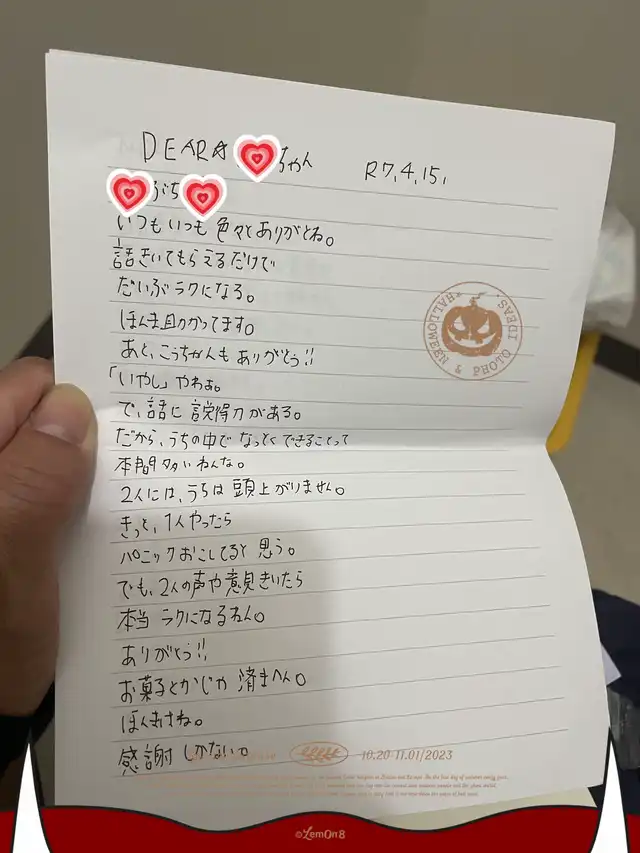 DEAR☆ ちゃん R7,4,15,
ぶち
いつもいつも色々とありがとね。
話きいてもらえるだけで
だいぶラクになる。
ほんま助かってます。
あと、こうちゃんもありがとう!!
「いやし」やわぁ。
で、話に説得力がある。
だから、うちの中でなっとくできることって
本間多いねんな。
2人には、うちは頭上がりません。
きっと、1人やったら
パニックおこしてると思う。
でも、2人の声や意見きいたら
本当ラクになるねん。
ありがとう!!
お菓子とかじゃ済まへん。
ほんまさね。
感謝しかない。
HALLOWEEN & PHOTO IDEAS
10.20-11.01/2023
©Lemon8